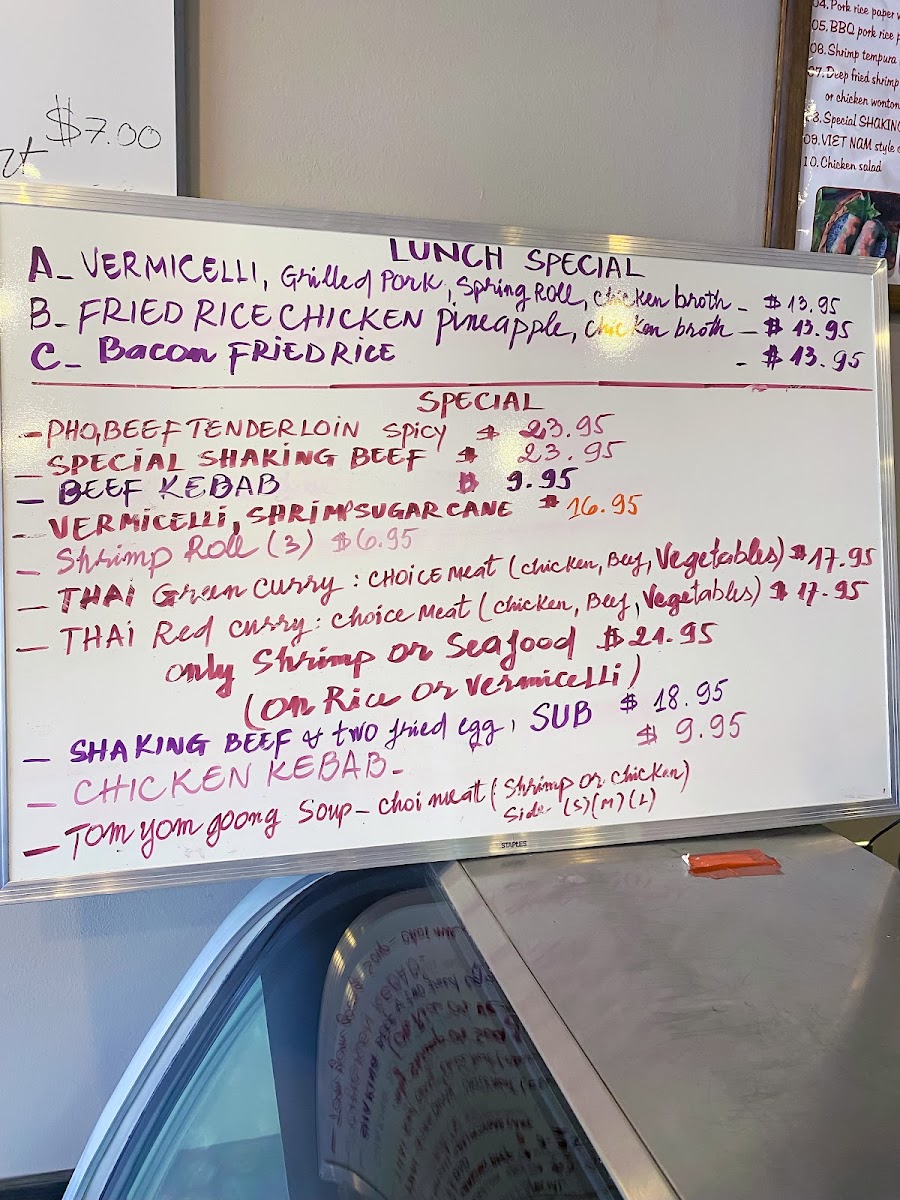 $7.00
LUNCH SPECIAL
A_ VERMICELLI, Grilled Pork, Spring Roll, chicken broth _ $13.95
B_ FRIED RICE CHICKEN Pineapple, chicken broth _ $13.95
C_ Bacon FRIED RICE _ $13.95
SPECIAL
- PHO, BEEF TENDERLOIN SPICY $ 23.95
- SPECIAL SHAKING BEEF $ 23.95
- BEEF KEBAB $ 9.95
- VERMICELLI, SHRIMP SUGAR CANE $ 16.95
- Shrimp Roll (3) $6.95
- THAI Green Curry : CHOICE Meat (chicken, Beef, Vegetables) $17.95
- THAI Red curry : Choice Meat (chicken, Beef, Vegetables) $ 17.95
only Shrimp or Seafood $21.95
(on Rice or Vermicelli)
- SHAKING BEEF & two fried egg, SUB $ 18.95
- CHICKEN KEBAB - $ 9.95
- Tom yom goong Soup - choi meat (Shrimp or chicken)
Side (S) (M) (L)
STAPLES
04. Pork rice paper
05. BBQ pork rice
06. Shrimp tempura
07. Deep fried shrimp
or chicken wonton
8. Special SHAKING
09. VIET NAM style
10. Chicken salad